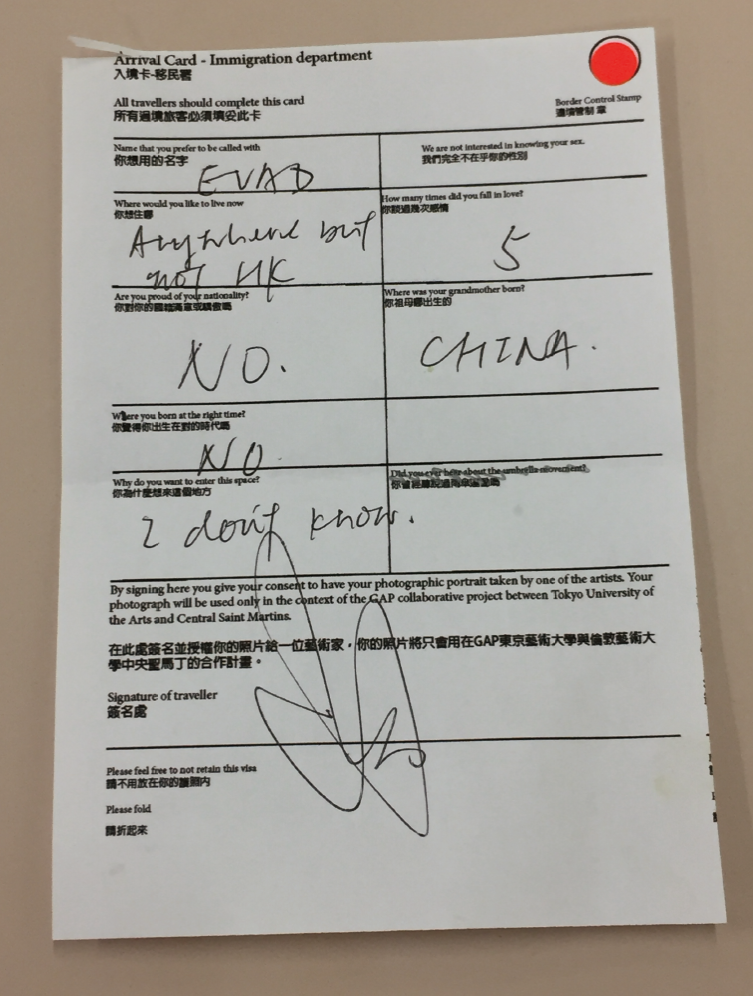 Arrival Card - Immigration department
入境卡-移民署
All travellers should complete this card
所有過境旅客必須填妥此卡
Border Control Stamp
邊境管制 章
Name that you prefer to be called with
你想用的名字
EVAD
We are not interested in knowing your sex.
我們完全不在乎你的性別
Where would you like to live now
你想住哪
Anywhere but
not UK
How many times did you fall in love?
你談過幾次感情
5
Are you proud of your nationality?
你對你的國籍滿意或驕傲嗎
NO.
Where was your grandmother born?
你祖母哪出生的
CHINA.
Where you born at the right time?
你覺得你出生在對的時代嗎
NO
Why do you want to enter this space?
你為什麼想來這個地方
I don't know.
Did you ever hear about the umbrella movement?
你曾經聽說過雨傘運動嗎
By signing here you give your consent to have your photographic portrait taken by one of the artists. Your
photograph will be used only in the context of the GAP collaborative project between Tokyo University of
the Arts and Central Saint Martins.
在此處簽名並授權你的照片給一位藝術家，你的照片將只會用在GAP東京藝術大學與倫敦藝術大
學中央聖馬丁的合作計畫。
Signature of traveller
簽名處
Please feel free to not retain this visa
請不用放在你的護照內
Please fold
請折起來